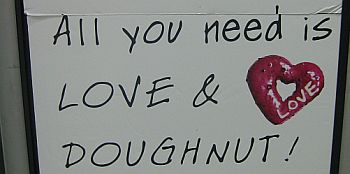 All you need is
LOVE &
LOVE
DOUGHNUT!